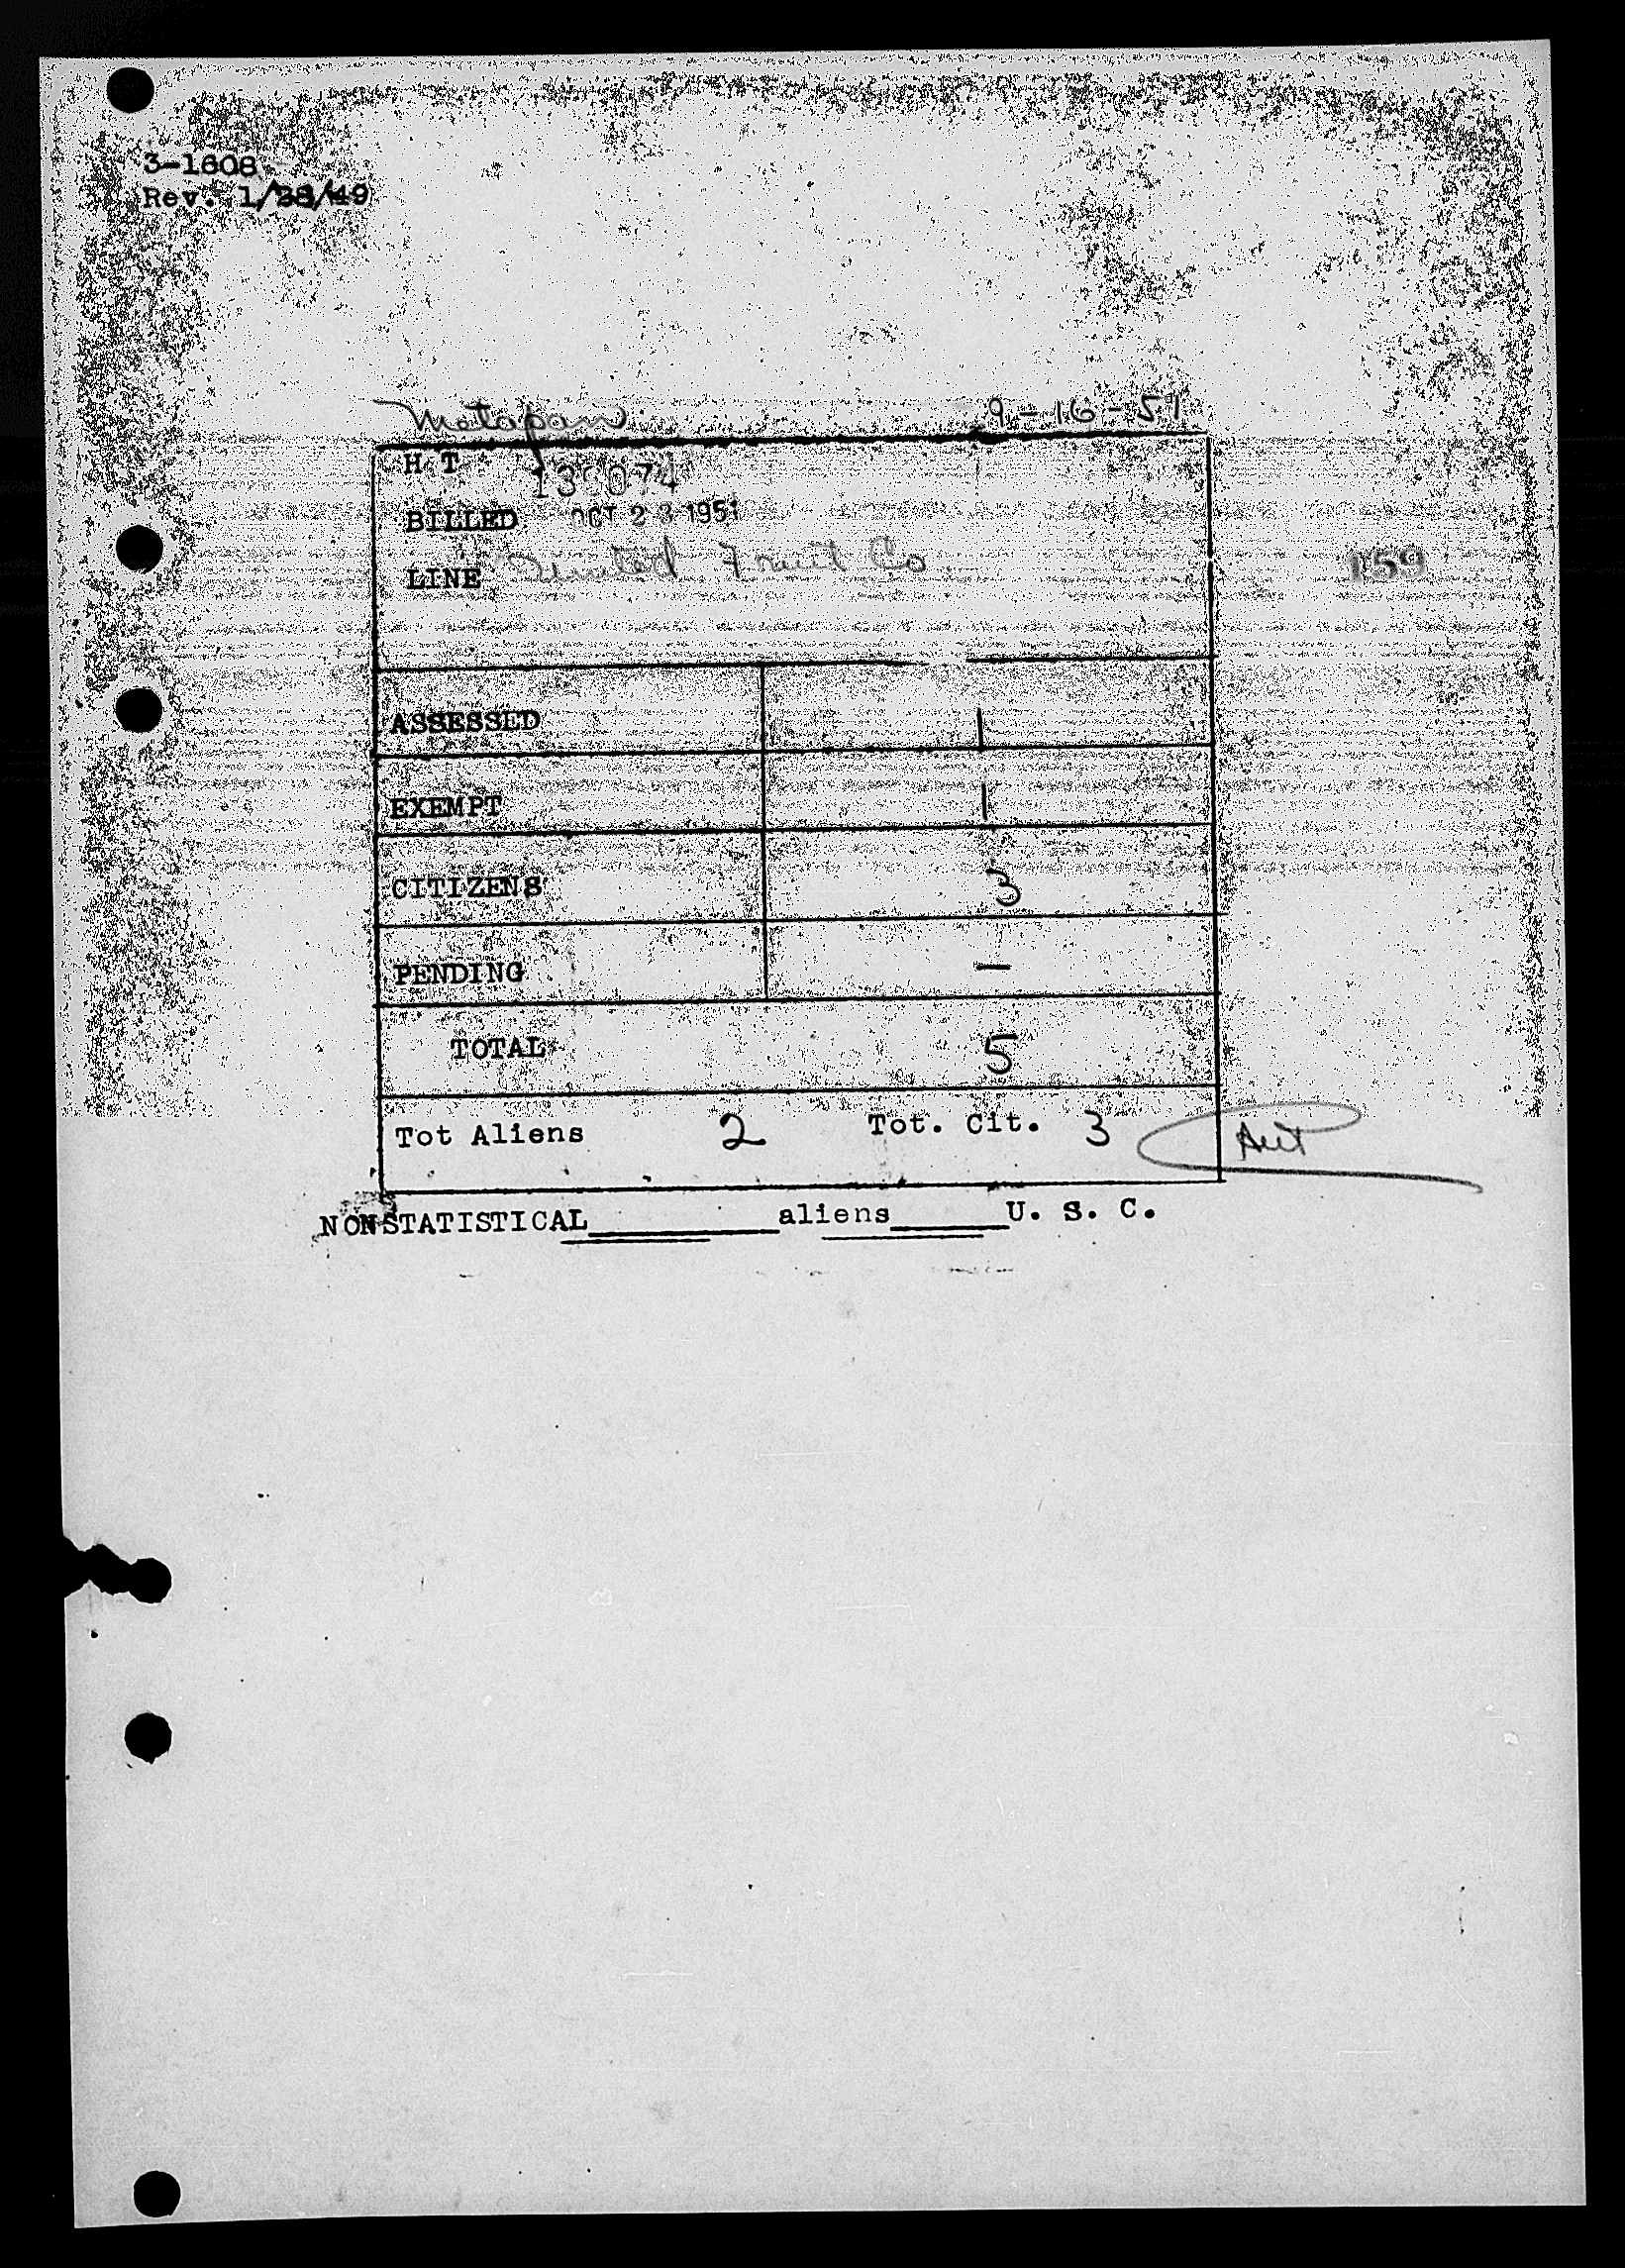 3-1608
Rev. 1/28/49
Matapan 9-16-51
H T
BILLED OCT 23 1951
LINE United Fruit Co
159
ASSESSED 1
EXEMPT 1
CITIZENS 3
PENDING —
TOTAL 5
Tot Aliens 2 Tot. Cit. 3
NONSTATISTICAL________aliens_____U. S. C.